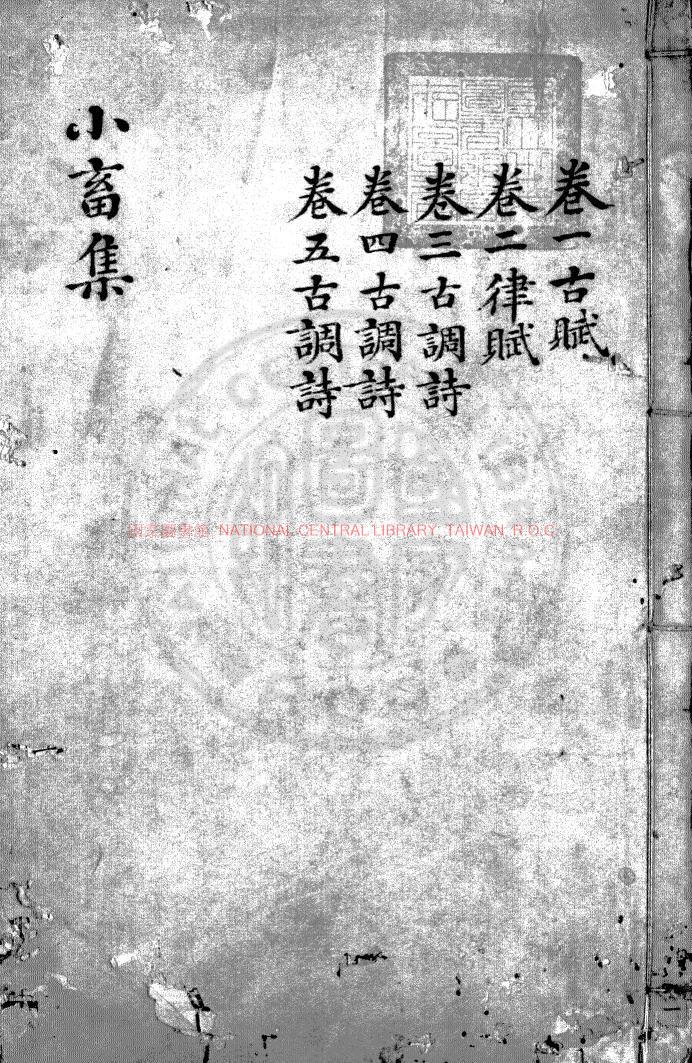 卷一古賦
卷二律賦
卷三古調詩
卷四古調詩
卷五古調詩
小畜集
國家圖書館 NATIONAL CENTRAL LIBRARY, TAIWAN, R.O.C.